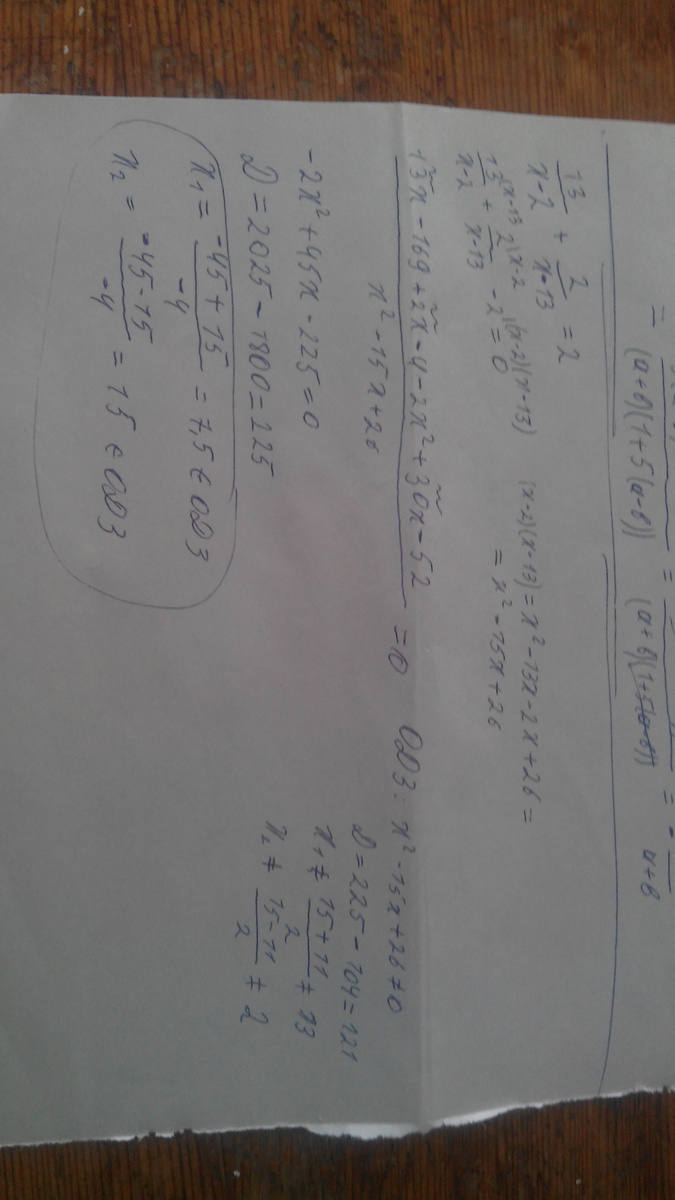 = (a+b)(1+5(a-b)) = (a+b)(1+5(a-b)) = a+b
13/(x-2) + 2/(x-13) = 2
13/(x-2) |x-13 + 2/(x-13) |x-2 - 2 |(x-2)(x-13) = 0
(x-2)(x-13) = x² - 13x - 2x + 26 =
= x² - 15x + 26
(13x - 169 + 2x - 4 - 2x² + 30x - 52)/(x² - 15x + 26) = 0
ОДЗ: x² - 15x + 26 ≠ 0
D = 225 - 104 = 121
x₁ ≠ (15 + 11)/2 ≠ 13
x₂ ≠ (15 - 11)/2 ≠ 2
-2x² + 45x - 225 = 0
D = 2025 - 1800 = 225
x₁ = (-45 + 15)/(-4) = 7,5 ∈ ОДЗ
x₂ = (-45 - 15)/(-4) = 15 ∈ ОДЗ